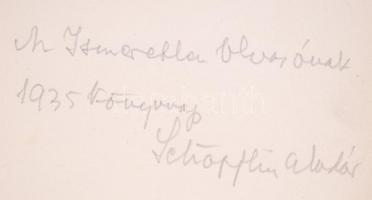 Az Ismeretlen Olvasónak
1935 Könyvnap
Schöpflin Aladár